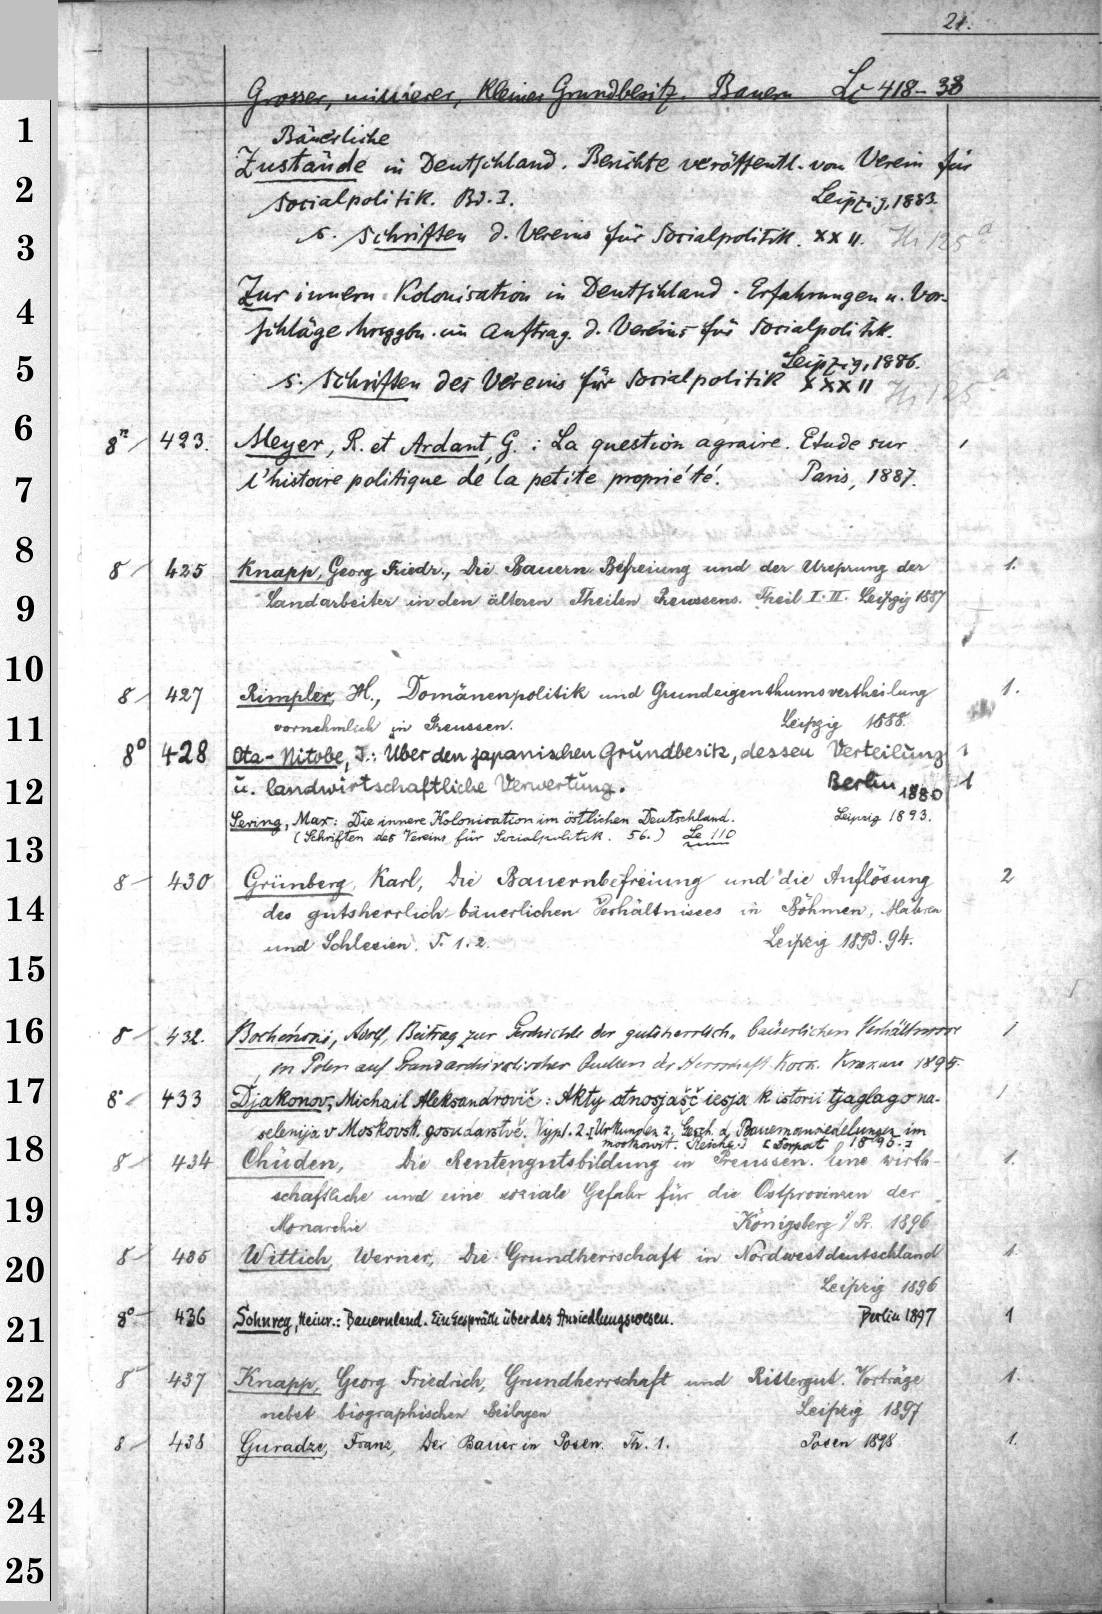 21.
Grosser, mittlerer, kleiner Grundbesitz. Bauern Lc 418-38
1
Bäuerliche
Zustände in Deutschland. Berichte veröffentl. von Verein für
2
Socialpolitik. Bd. I. Leipzig, 1883.
3
s. Schriften d. Vereins für Socialpolitik. XXII. Hi 125 a
4
Zur innern Kolonisation in Deutschland. Erfahrungen u. Vor-
schläge hrsggbn. im Auftrag d. Vereins für Socialpolitik.
5
Leipzig, 1886.
s. Schriften des Vereins für Socialpolitik XXXII Hi 125 a
6
8° 423. Meyer, R. et Ardant, G.: La question agraire. Etude sur 1
7
l'histoire politique de la petite propriété. Paris, 1887.
8
8 425 Knapp, Georg Friedr., Die Bauern Befreiung und der Ursprung der 1.
9
Landarbeiter in den älteren Theilen Preussens. Theil I. II. Leipzig 1887
10
8 427 Rimpler, H., Domänenpolitik und Grundeigenthumsvertheilung 1.
11
vornehmlich in Preussen. Leipzig 1888.
8° 428 Ota-Nitobe, I.: Über den japanischen Grundbesitz, dessen Verteilung 1
12
u. landwirtschaftliche Verwertung. Berlin 1890 1
Sering, Max: Die innere Kolonisation im östlichen Deutschland. Leipzig 1893.
13
(Schriften des Vereins für Sozialpolitik. 56.) Le 110
8 430 Grünberg, Karl, Die Bauernbefreiung und die Auflösung 2
14
des gutsherrlich-bäuerlichen Verhältnisses in Böhmen, Mähren
und Schlesien. T. 1. 2. Leipzig 1893. 94.
15
16
8 432. Bocheński, Adolf, Beitrag zur Geschichte der gutsherrlich-bäuerlichen Verhältnisse 1
in Polen auf Grund archivalischer Quellen der Herrschaft Kock. Krakau 1895.
17
8° 433 Djakonov, Michail Aleksandrovič: Akty otnosjaščiesja k istorii tjaglago na- 1
selenija v Moskovsk. gosudarstvě. Vyp. 2. [Urkunden z. Gesch. d. Bauernansiedelungen im
18
moskowit. Reiche.] [Dorpat 1895.]
8 434 Chüden, Die Rentengutsbildung in Preussen. Eine wirth- 1.
19
schaftliche und eine soziale Gefahr für die Ostprovinzen der
Monarchie Königsberg i/Pr. 1896
20
8 435 Wittich, Werner, Die Grundherrschaft in Nordwestdeutschland 1
Leipzig 1896
21
8° 436 Sohnrey, Heinr.: Bauernland. Ein Gespräch über das Ansiedlungswesen. Berlin 1897 1
22
8 437 Knapp, Georg Friedrich, Grundherrschaft und Rittergut. Vorträge 1.
nebst biographischen Beilagen Leipzig 1897
23
8 438 Guradze, Franz, Der Bauer in Posen. Th. 1. Posen 1898 1.
24
25